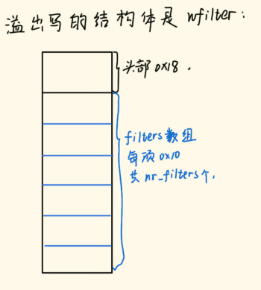 溢出写的结构体是 wfilter:
头部 0x18.
filters数组
每项 0x10
共 nr_filters个.